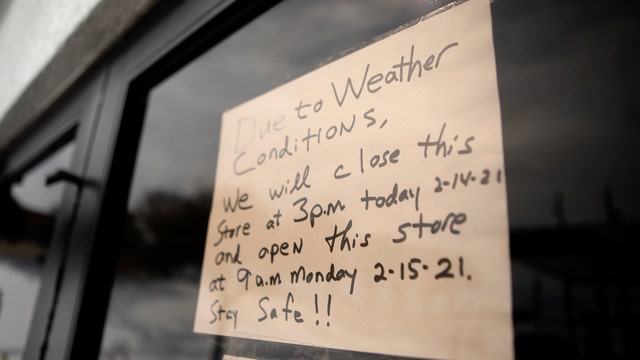 Due to Weather
Conditions,
We will close this
Store at 3p.m today 2-14-21
and open this store
at 9a.m Monday 2-15-21.
Stay Safe!!